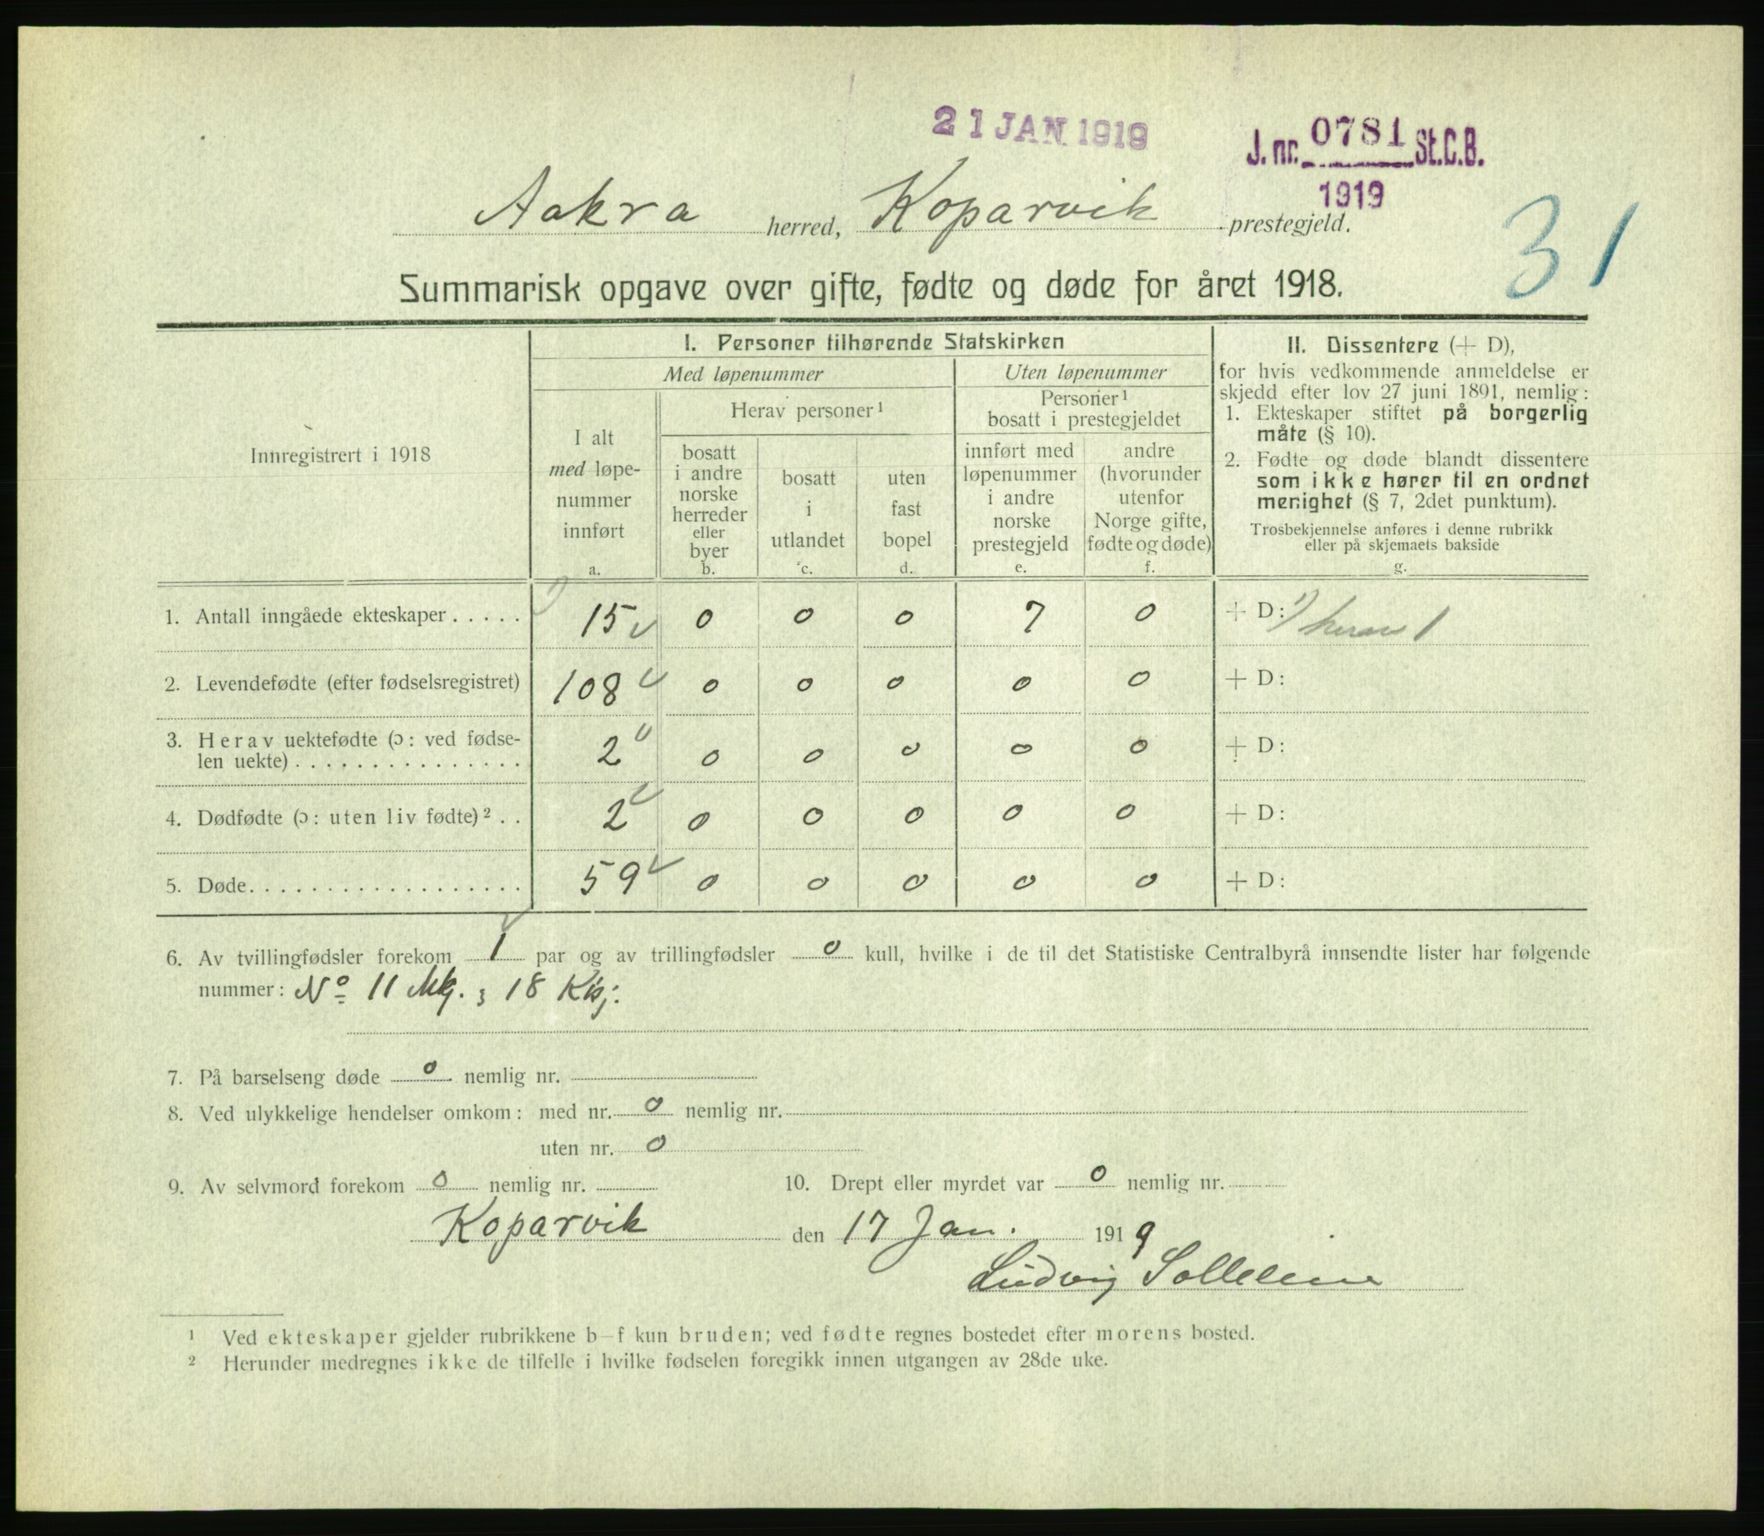 21 JAN 1919
J. nr. 0781 St.C.B.
1919
Aakra herred, Koparvik prestegjeld.
31
Summarisk opgave over gifte, fødte og døde for året 1918.
Innregistrert i 1918
I. Personer tilhørende Statskirken
Med løpenummer
Uten løpenummer
I alt
med løpe-
nummer
innført
a.
Herav personer ¹
bosatt
i andre
norske
herreder
eller
byer
b.
bosatt
i
utlandet
c.
uten
fast
bopel
d.
Personer ¹
bosatt i prestegjeldet
innført med
løpenummer
i andre
norske
prestegjeld
e.
andre
(hvorunder
utenfor
Norge gifte,
fødte og døde)
f.
II. Dissentere (+ D),
for hvis vedkommende anmeldelse er
skjedd efter lov 27 juni 1891, nemlig:
1. Ekteskaper stiftet på borgerlig
måte (§ 10).
2. Fødte og døde blandt dissentere
som ikke hører til en ordnet
menighet (§ 7, 2det punktum).
Trosbekjennelse anføres i denne rubrikk
eller på skjemaets bakside
g.
1. Antall inngåede ekteskaper . . . . . 15 0 0 0 7 0 + D: 1) herav 1
2. Levendefødte (efter fødselsregistret) 108 0 0 0 0 0 + D:
3. Herav uektefødte (ɔ: ved fødse-
len uekte) . . . . . . . . . . . . . . . 2 0 0 0 0 0 + D:
4. Dødfødte (ɔ: uten liv fødte) ² . . 2 0 0 0 0 0 + D:
5. Døde. . . . . . . . . . . . . . . . . . 59 0 0 0 0 0 + D:
6. Av tvillingfødsler forekom 1 par og av trillingfødsler 0 kull, hvilke i de til det Statistiske Centralbyrå innsendte lister har følgende
nummer: No 11 Mk. ; 18 Kkj.
7. På barselseng døde 0 nemlig nr.
8. Ved ulykkelige hendelser omkom: med nr. 0 nemlig nr.
uten nr. 0
9. Av selvmord forekom 0 nemlig nr. 10. Drept eller myrdet var 0 nemlig nr.
Koparvik den 17 Jan. 1919
Ludvig
¹ Ved ekteskaper gjelder rubrikkene b–f kun bruden; ved fødte regnes bostedet efter morens bosted.
² Herunder medregnes ikke de tilfelle i hvilke fødselen foregikk innen utgangen av 28de uke.